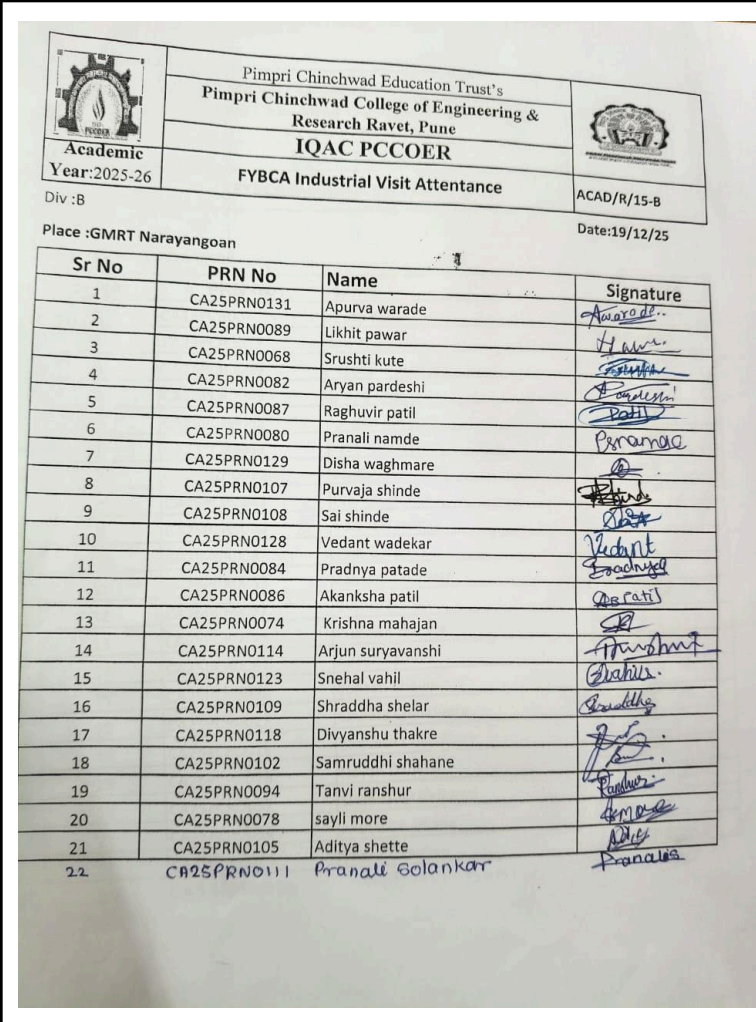 Pimpri Chinchwad Education Trust's
Pimpri Chinchwad College of Engineering &
Research Ravet, Pune
IQAC PCCOER
PCCOER
Academic
Year:2025-26
FYBCA Industrial Visit Attentance
ACAD/R/15-B
Div :B
Date:19/12/25
Place :GMRT Narayangoan
Sr No PRN No Name Signature
1 CA25PRN0131 Apurva warade Awarade..
2 CA25PRN0089 Likhit pawar
3 CA25PRN0068 Srushti kute
4 CA25PRN0082 Aryan pardeshi Pardeshi
5 CA25PRN0087 Raghuvir patil Patil
6 CA25PRN0080 Pranali namde
7 CA25PRN0129 Disha waghmare
8 CA25PRN0107 Purvaja shinde
9 CA25PRN0108 Sai shinde
10 CA25PRN0128 Vedant wadekar Vedant
11 CA25PRN0084 Pradnya patade
12 CA25PRN0086 Akanksha patil ABPatil
13 CA25PRN0074 Krishna mahajan
14 CA25PRN0114 Arjun suryavanshi
15 CA25PRN0123 Snehal vahil
16 CA25PRN0109 Shraddha shelar
17 CA25PRN0118 Divyanshu thakre
18 CA25PRN0102 Samruddhi shahane
19 CA25PRN0094 Tanvi ranshur Ranshur
20 CA25PRN0078 sayli more
21 CA25PRN0105 Aditya shette
22 CA25PRN0111 Pranali Solankar PranaliS